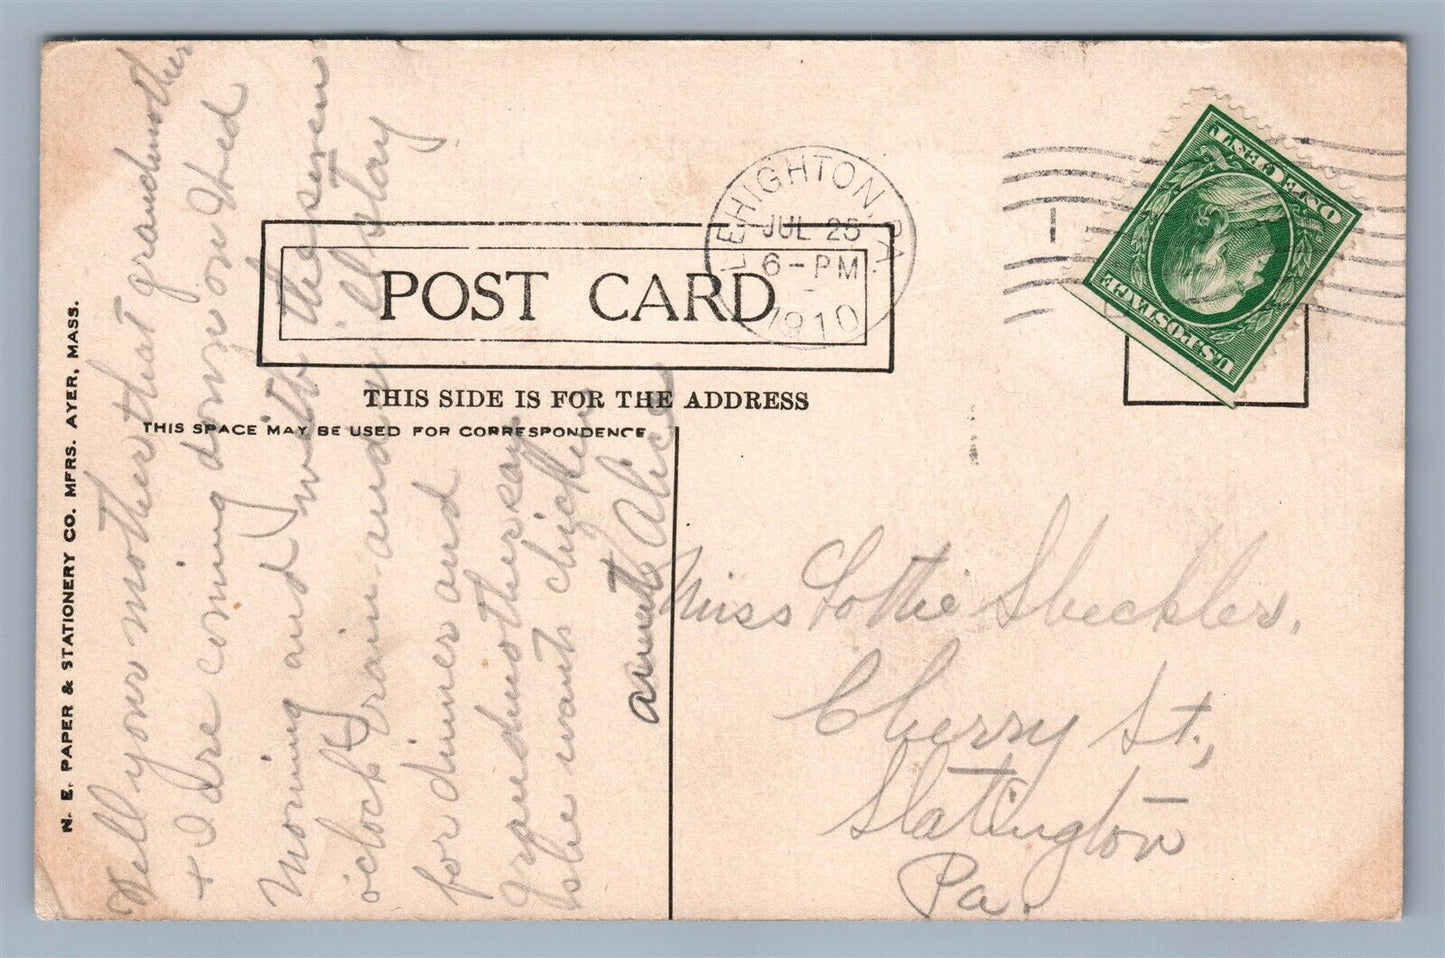 N. E. PAPER & STATIONERY CO. MFRS. AYER, MASS.
POST CARD
THIS SIDE IS FOR THE ADDRESS
THIS SPACE MAY BE USED FOR CORRESPONDENCE
LEHIGHTON, PA.
JUL 25
6-PM
1910
1
U.S. POSTAGE
ONE CENT
Tell your mother that grandmother
+ I are coming down on Wed
morning and with the seven
oclock train and will stay
for dinner and
grandmother say
she wants chicken
aunt Alice
Miss Lottie Sheckler,
Cherry St.,
Slatington
Pa.